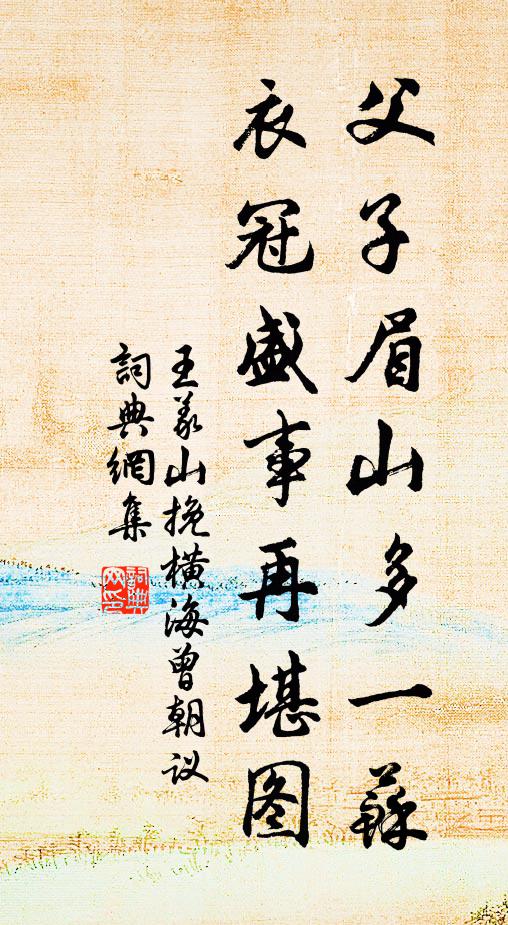 父子眉山多一蘇
衣冠盛事再堪图
王义山挽橫海曾朝议
詞典網集